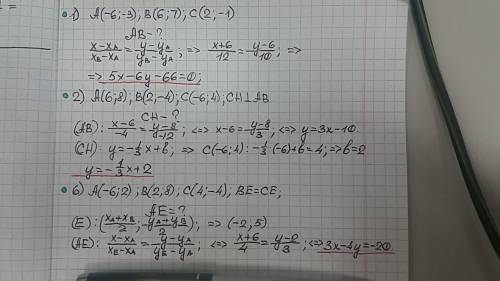 1) A(-6;-3); B(6;7); C(2;-1)
AB-?
(x-xA)/(xB-xA) = (y-yA)/(yB-yA); => (x+6)/12 = (y-6)/10; =>
=> 5x-6y-66=0;
2) A(6;8); B(2;-4); C(-6;4); CH⊥AB
CH-?
(AB): (x-6)/-4 = (y-8)/-12; <=> x-6=(y-8)/3; <=> y=3x-10.
(CH): y=-1/3x+b; => C(-6;4): -1/3·(-6)+b=4; => b=2
y=-1/3x+2
6) A(-6;2); B(2;8); C(4;-4), BE=CE;
AE=?
(E): ((xA+xB)/2; (yA+yB)/2); => (-2;5)
(AE): (x-xA)/(xE-xA) = (y-yA)/(yE-yA); <=> (x+6)/4 = (y-2)/3; <=> 3x-4y=-20.